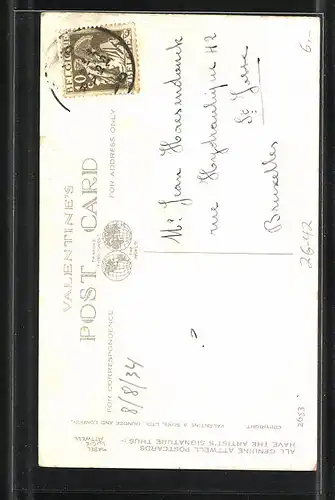 VALENTINE'S
POST CARD
FOR CORRESPONDENCE
FOR ADDRESS ONLY
8/8/34
Mr Jean
rue Hydraulique 42
St Josse
Bruxelles
6.-
2642
2653
ALL GENUINE ATTWELL POSTCARDS
HAVE THE ARTIST'S SIGNATURE THUS:-
MABEL
LUCIE
ATTWELL
COPYRIGHT
VALENTINE & SONS, LTD. DUNDEE AND LONDON.